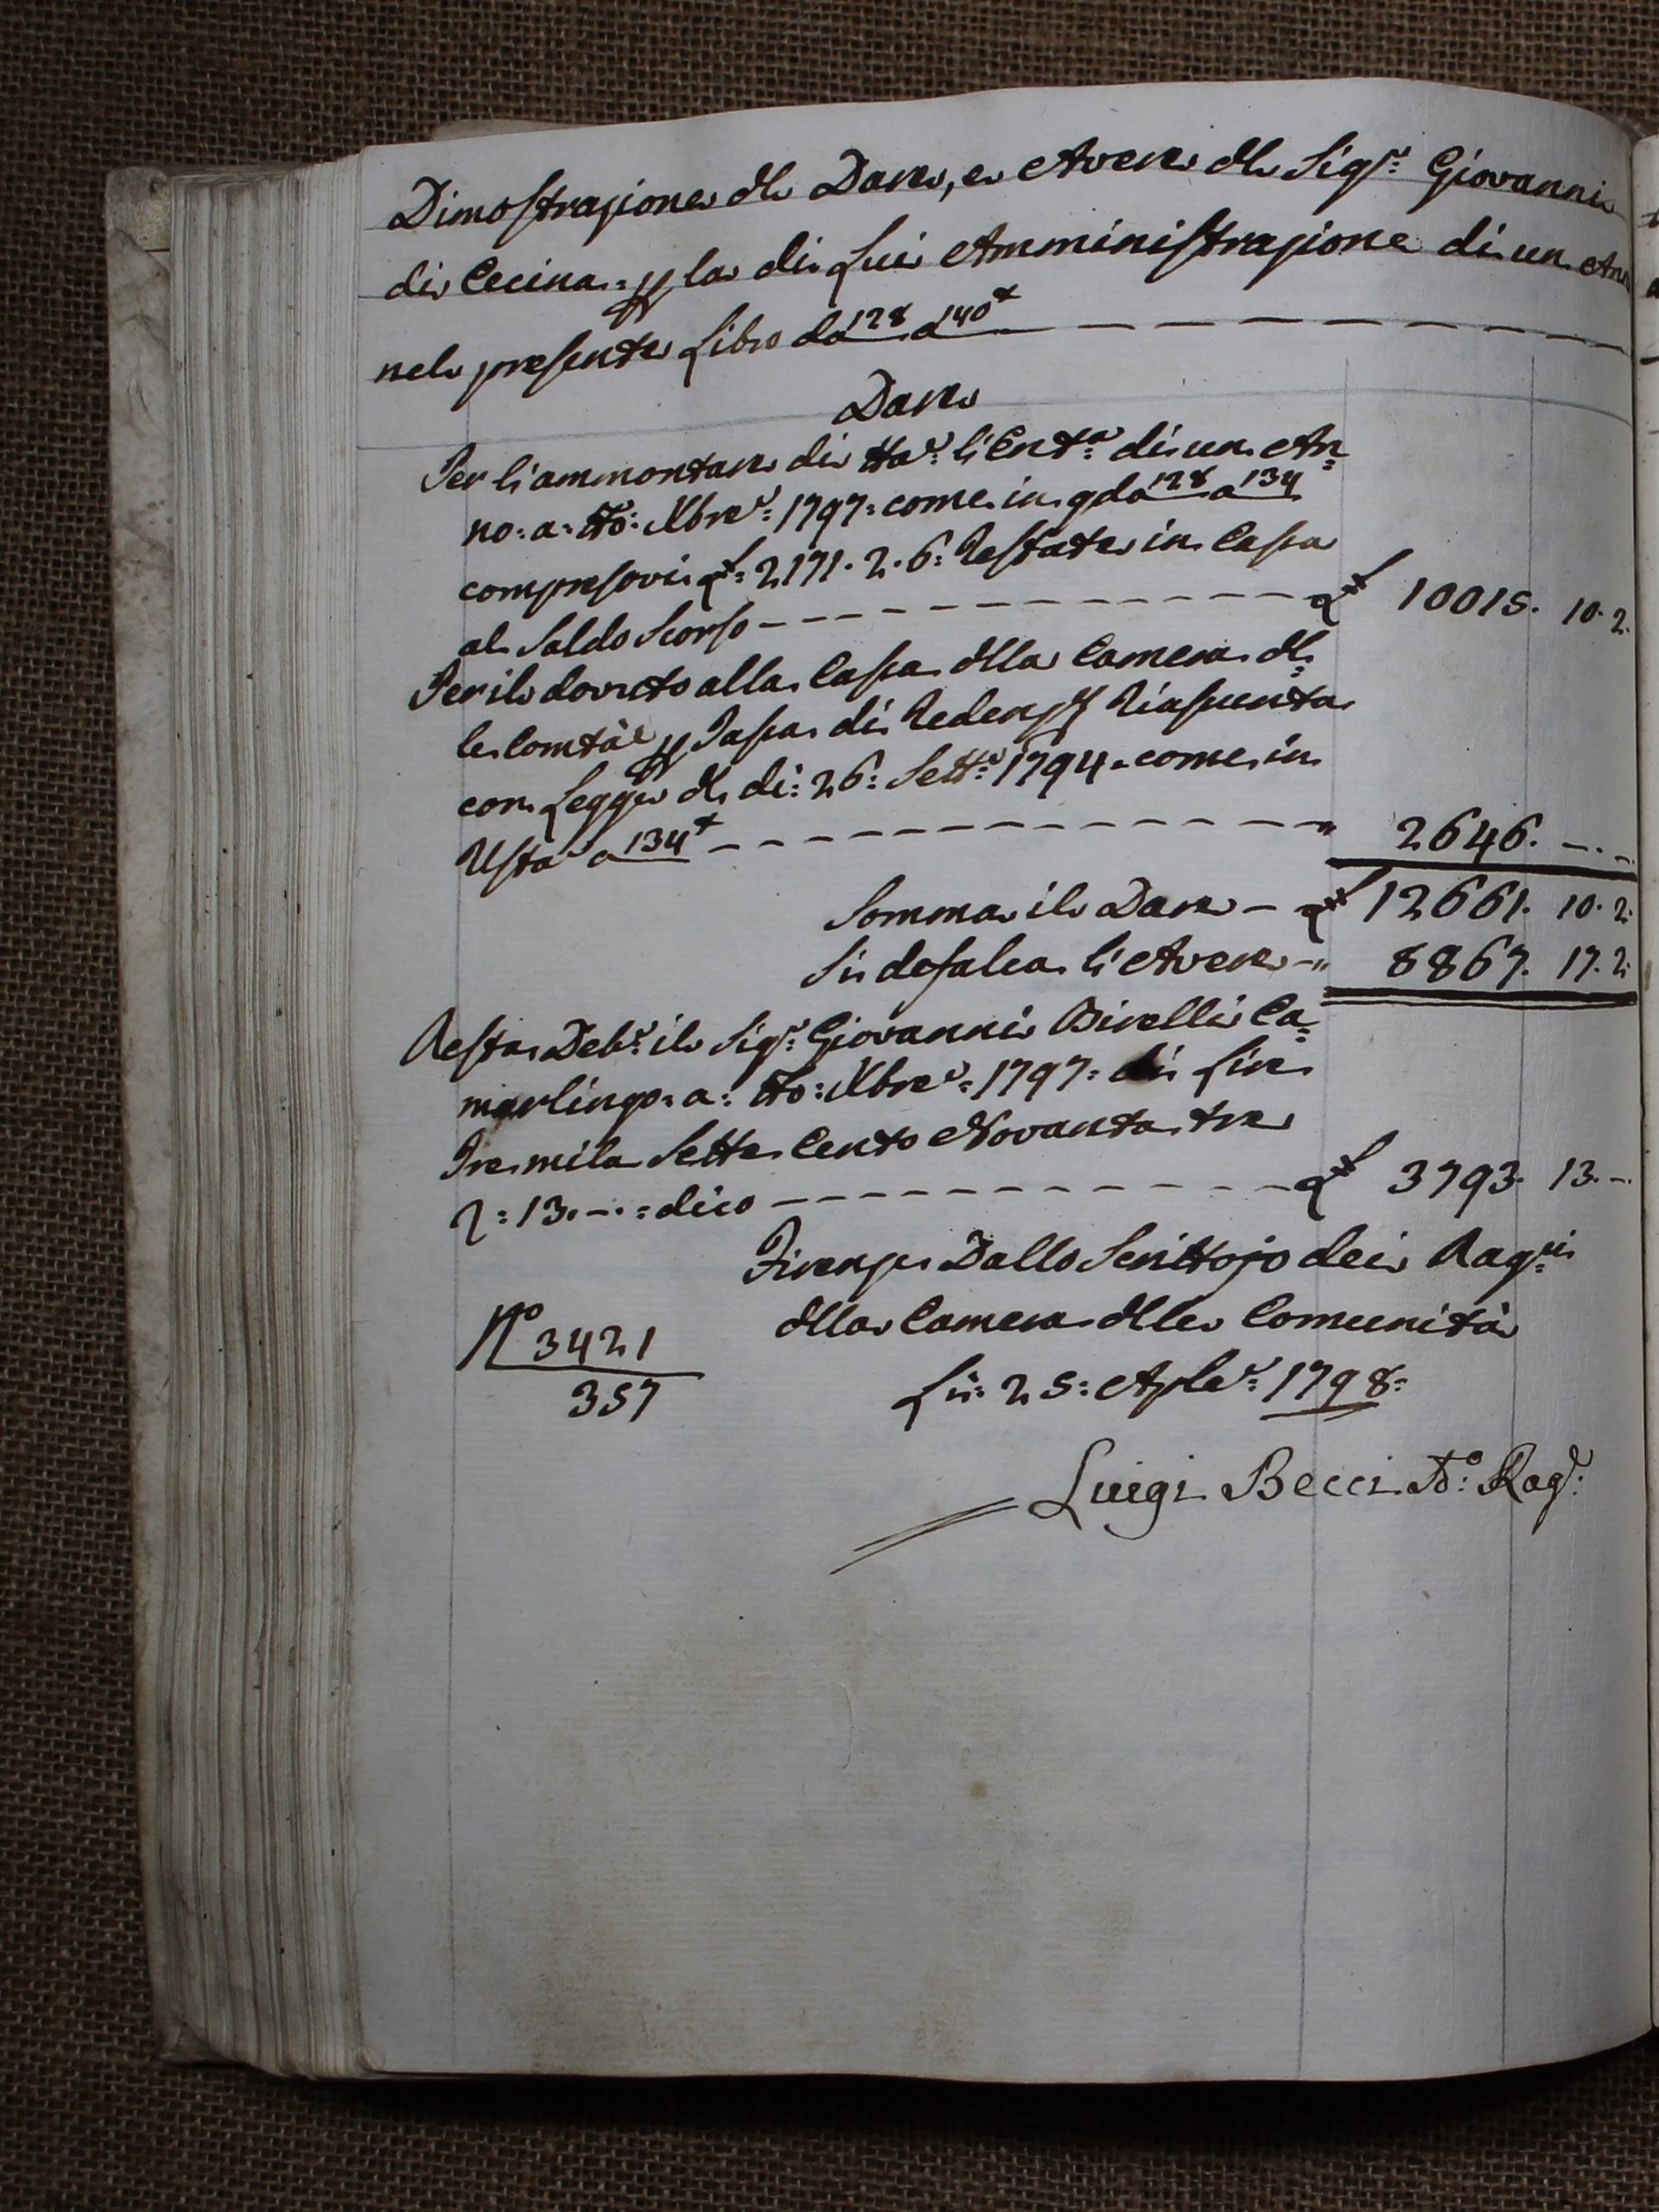 Dimostrazione dl Dare, e Avere dl Sigr: Giovanni
di Cecina = p la di Lui Amministrazione di un An
nel presente Libro da 128 a 140
Dare
Per l'ammontare di tta: l'Entta di un An=
no: a: tto: Xbre: 1797: come in qdo 128 a 134
compresovi £: 2171. 2. 6: Restate in Cassa
al Saldo Scorso £ 10015. 10. 2.
Per il dovuto alla Cassa dlla Camera dl=
le Comtà p Tassa di Redenz Riassunta
con Legge dl di: 26: Sette: 1794. come in
Usta a 134 " 2646. -. -
Somma il Dare - £ 12661. 10. 2.
Si defalca l'Avere - " 8867. 17. 2.
Resta Debre: il Sigr: Giovanni Birelli Ca=
marlingo: a: tto: Xbre: 1797: di Lire
Tremila Sette Cento Novanta tre
2: 13. -. = dico £ 3793. 13. -.
Firenze Dallo Scrittojo dei Ragri
dlla Camera dlle Comunità
Li: 25: Aple: 1798:
No 3421
357
Luigi Becci Ragr: